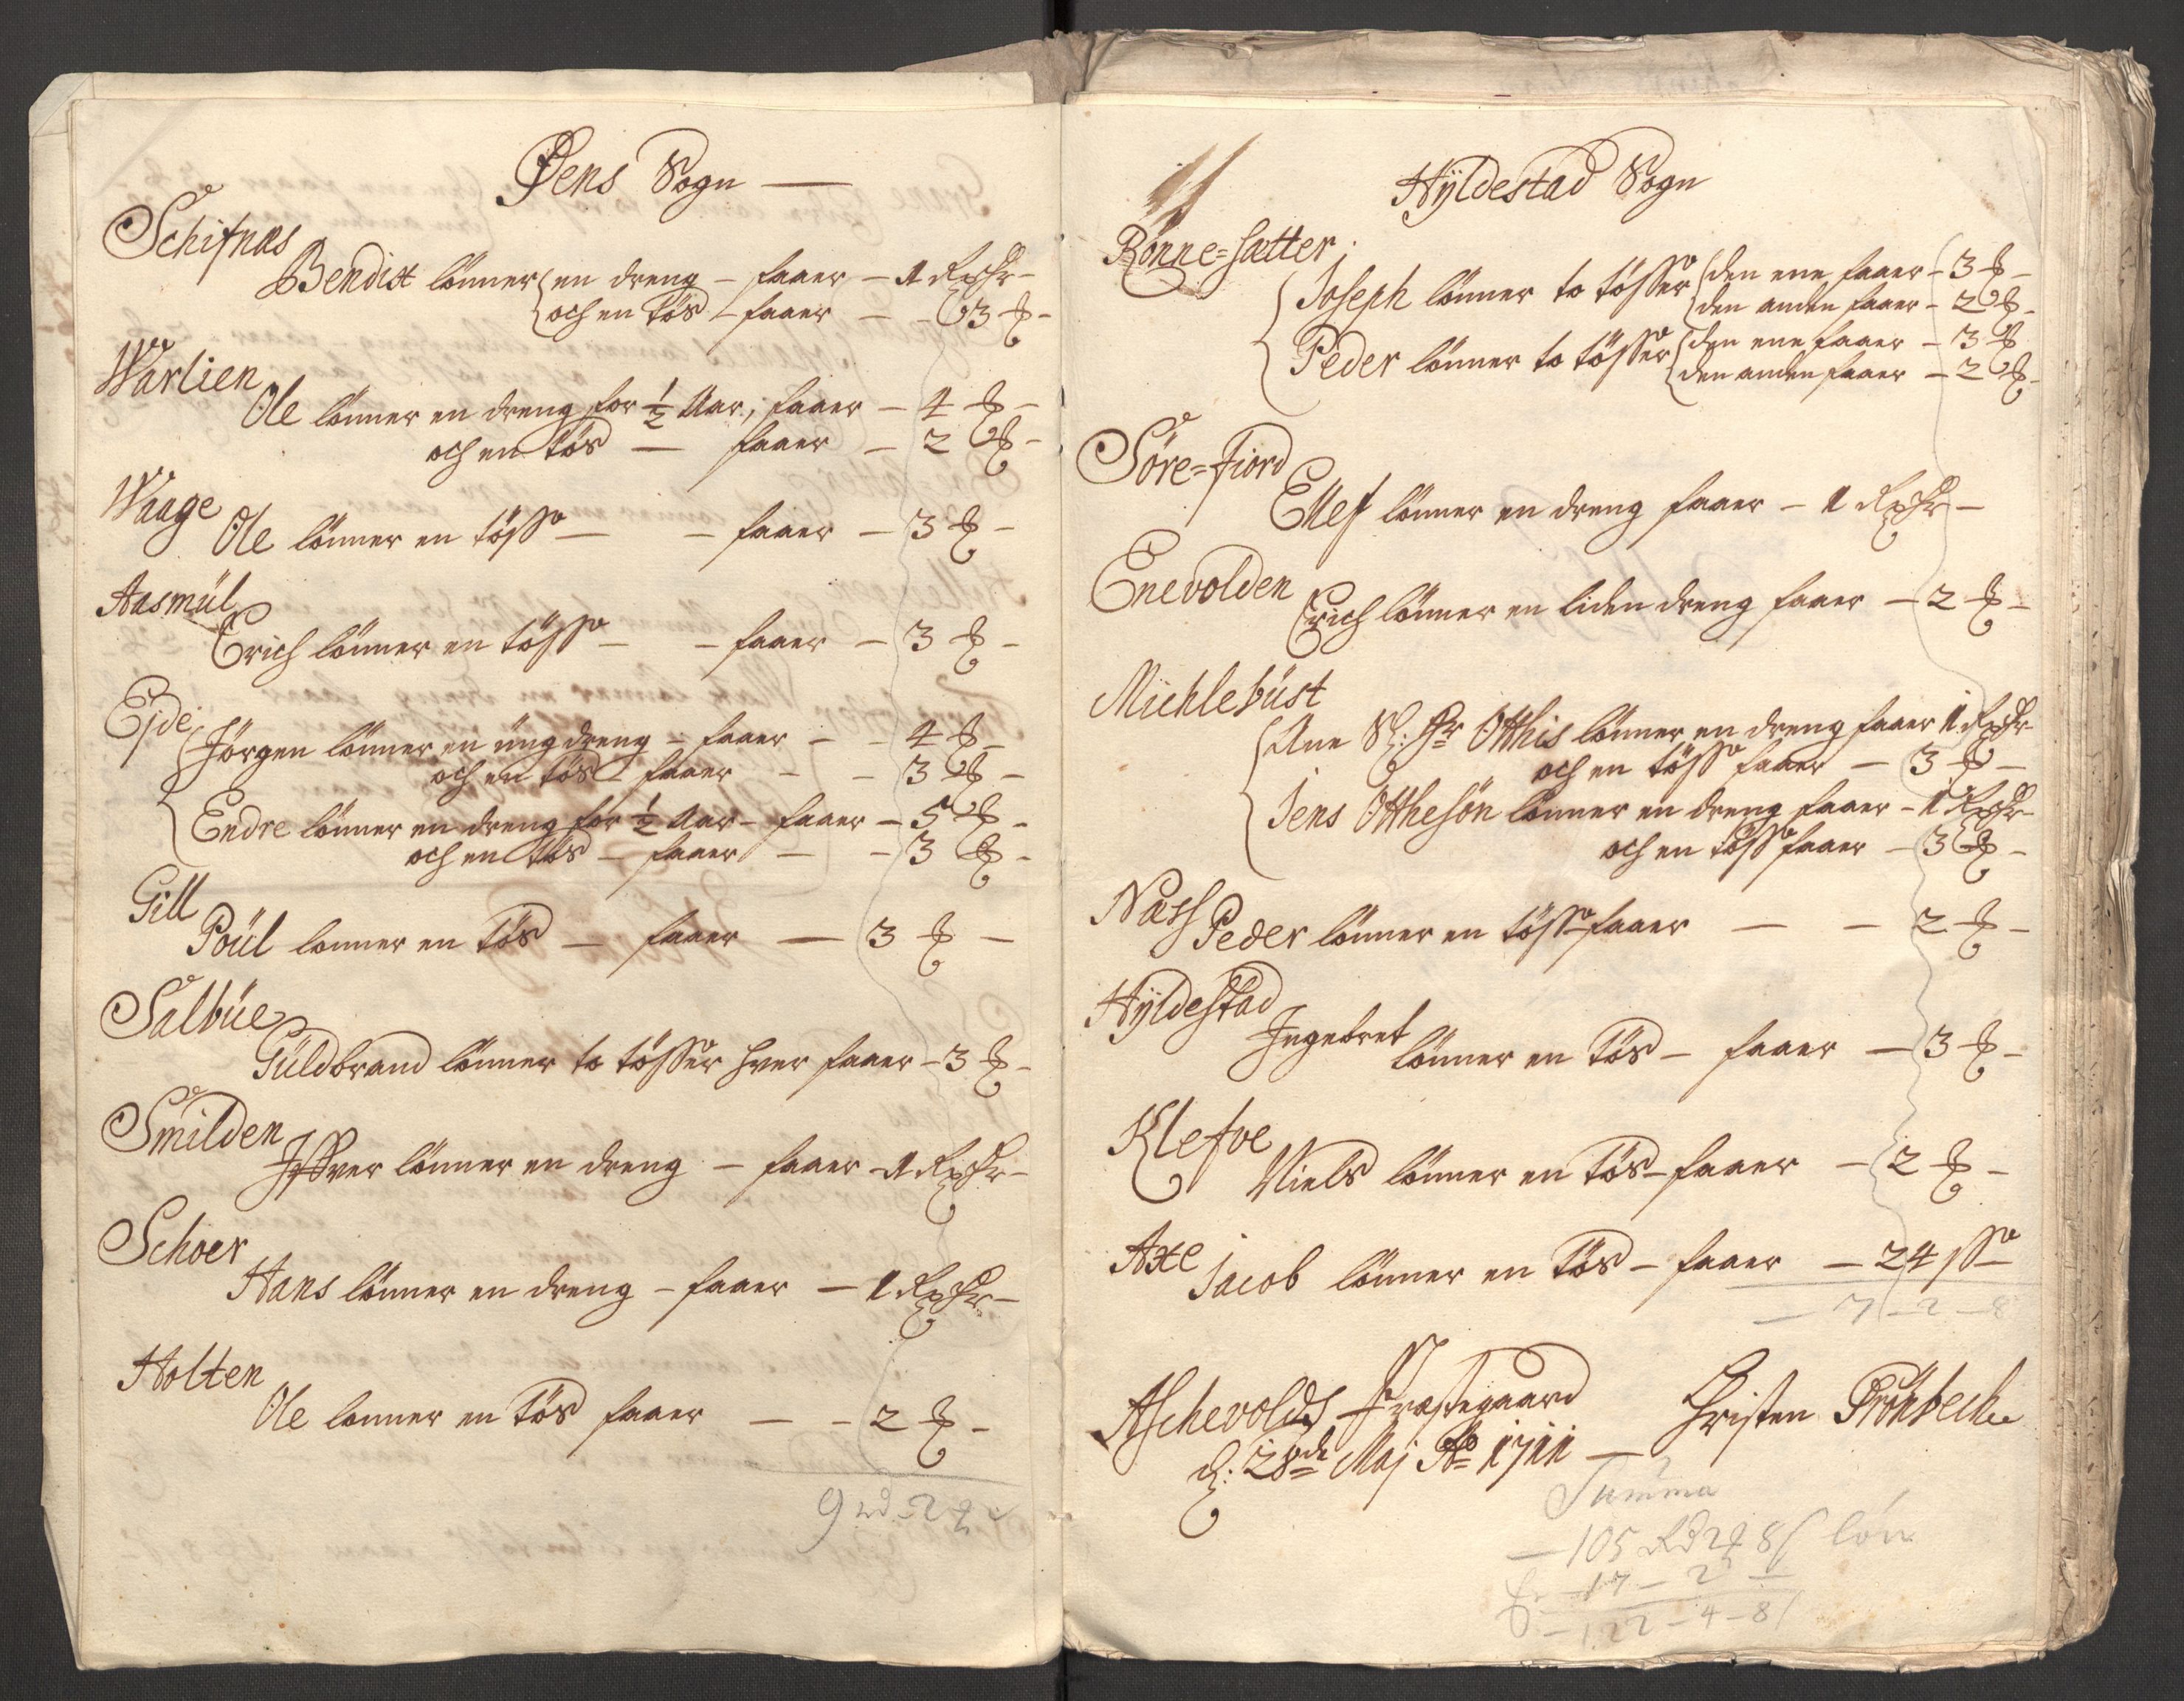 Øens Sogn —
Schifnæs
Bendix lönner en dreng – faaer – 1 Rixdr –
och en tös – faaer – – 3 ƒ –
Warlien
Ole lönner en dreng for ½ Aar, faaer – 4 ƒ –
och en tös — faaer – 2 ƒ –
Waage
Ole lönner en tösse – – faaer – 3 ƒ –
Aasmül
Erich lönner en tösse – – faaer – 3 ƒ –
Ejde
Jörgen lönner en üng dreng – faaer – – 4 ƒ –
och en tös – faaer – – 3 ƒ –
Endre lönner en dreng for ½ Aar – faaer – 5 ƒ –
och en tös – faaer – – 3 ƒ –
Gill
Poül lönner en tös – faaer — 3 ƒ –
Salbüe
Güldbrand lönner to tösser hver faaer – 3 ƒ –
Smilden
Jffver lönner en dreng – faaer – 1 Rixdr –
Schoer
Hans lönner en dreng – faaer – 1 Rixdr –
Holten
Ole lonner en tös faaer – – 2 ƒ –
9 rd 2 ƒ
Hÿldestad Sogn
Rönne=sætter.
Joseph lönner to tösser den ene faaer – 3 ƒ –
den anden faaer – 2 ƒ –
Peder lönner to tösser den ene faaer – 3 ƒ
den anden faaer – 2 ƒ –
Söre=fiord
Ellef lönner en dreng faaer – 1 Rixdr –
Enevolden
Erich lönner en liden dreng faaer – 2 ƒ –
Michlebüst
Ane Sl: Hr Otthis lönner en dreng faaer 1 Rixdr
och en tösse faaer – 3 ƒ –
Jens Otthesön lönner en dreng faaer – 1 Rixdr –
och en tösse faaer – 3 ƒ –
Næss
Peder lönner en tösse faaer — – 2 ƒ –
Hÿldestad
Ingebret lönner en tös – faaer – 3 ƒ –
Klefve
Niels lönner en tös – faaer – 2 ƒ –
Axe
Jacob lönner en tös – faaer – 24 ss –
– 7 – 2 – 8
Aschevolds Præstegaard
d: 28de Maj Ao 1711 —
Christen Brönbech
Summa
– 105 Rd 2 ƒ 8 s lön
– 17 – 2 –
– 122 – 4 – 8 s